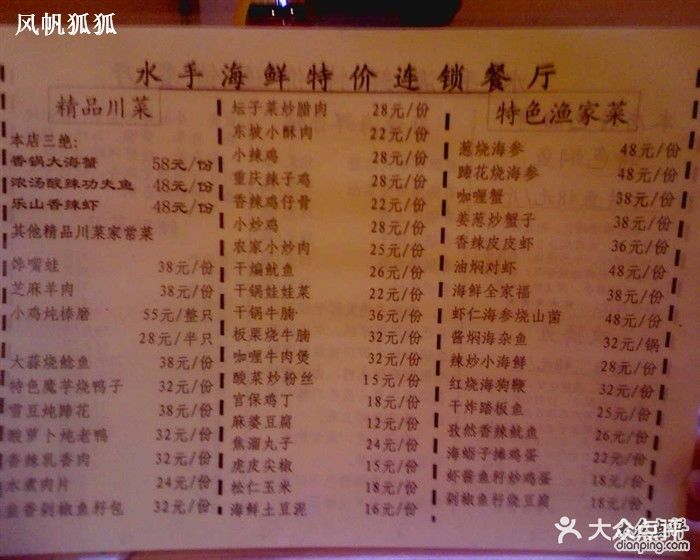 风帆狐狐
水手海鲜特价连锁餐厅
精品川菜
本店三绝:
香锅大海蟹 58元/份
浓汤酸辣功夫鱼 48元/份
乐山香辣虾 48元/份
其他精品川菜家常菜
馋嘴蛙 38元/份
芝麻羊肉 38元/份
小鸡炖榛磨 55元/整只
28元/半只
大蒜烧鲶鱼 38元/份
特色魔芋烧鸭子 32元/份
雪豆炖蹄花 38元/份
酸萝卜炖老鸭 32元/份
香辣乳香肉 32元/份
水煮肉片 24元/份
韭香剁椒鱼籽包 32元/份
坛子菜炒腊肉 28元/份
东坡小酥肉 22元/份
小辣鸡 28元/份
重庆辣子鸡 28元/份
香辣鸡仔骨 22元/份
小炒鸡 28元/份
农家小炒肉 25元/份
干煸鱿鱼 26元/份
干锅娃娃菜 22元/份
干锅牛腩 36元/份
板栗烧牛腩 32元/份
咖喱牛肉煲 32元/份
酸菜炒粉丝 15元/份
宫保鸡丁 18元/份
麻婆豆腐 12元/份
焦溜丸子 24元/份
虎皮尖椒 15元/份
松仁玉米 18元/份
海鲜土豆泥 16元/份
特色渔家菜
葱烧海参 48元/份
蹄花烧海参 48元/份
咖喱蟹 38元/份
姜葱炒蟹子 38元/份
香辣皮皮虾 36元/份
油焖对虾 48元/份
海鲜全家福 38元/份
虾仁海参烧山菌 48元/份
酱焖海杂鱼 32元/锅
辣炒小海鲜 28元/份
红烧海狗鞭 32元/份
干炸踏板鱼 25元/份
孜然香辣鱿鱼 26元/份
海蛎子摊鸡蛋 22元/份
虾酱鱼籽炒鸡蛋 18元/份
剁椒鱼籽烧豆腐 18元/份
大众点评
dianping.com